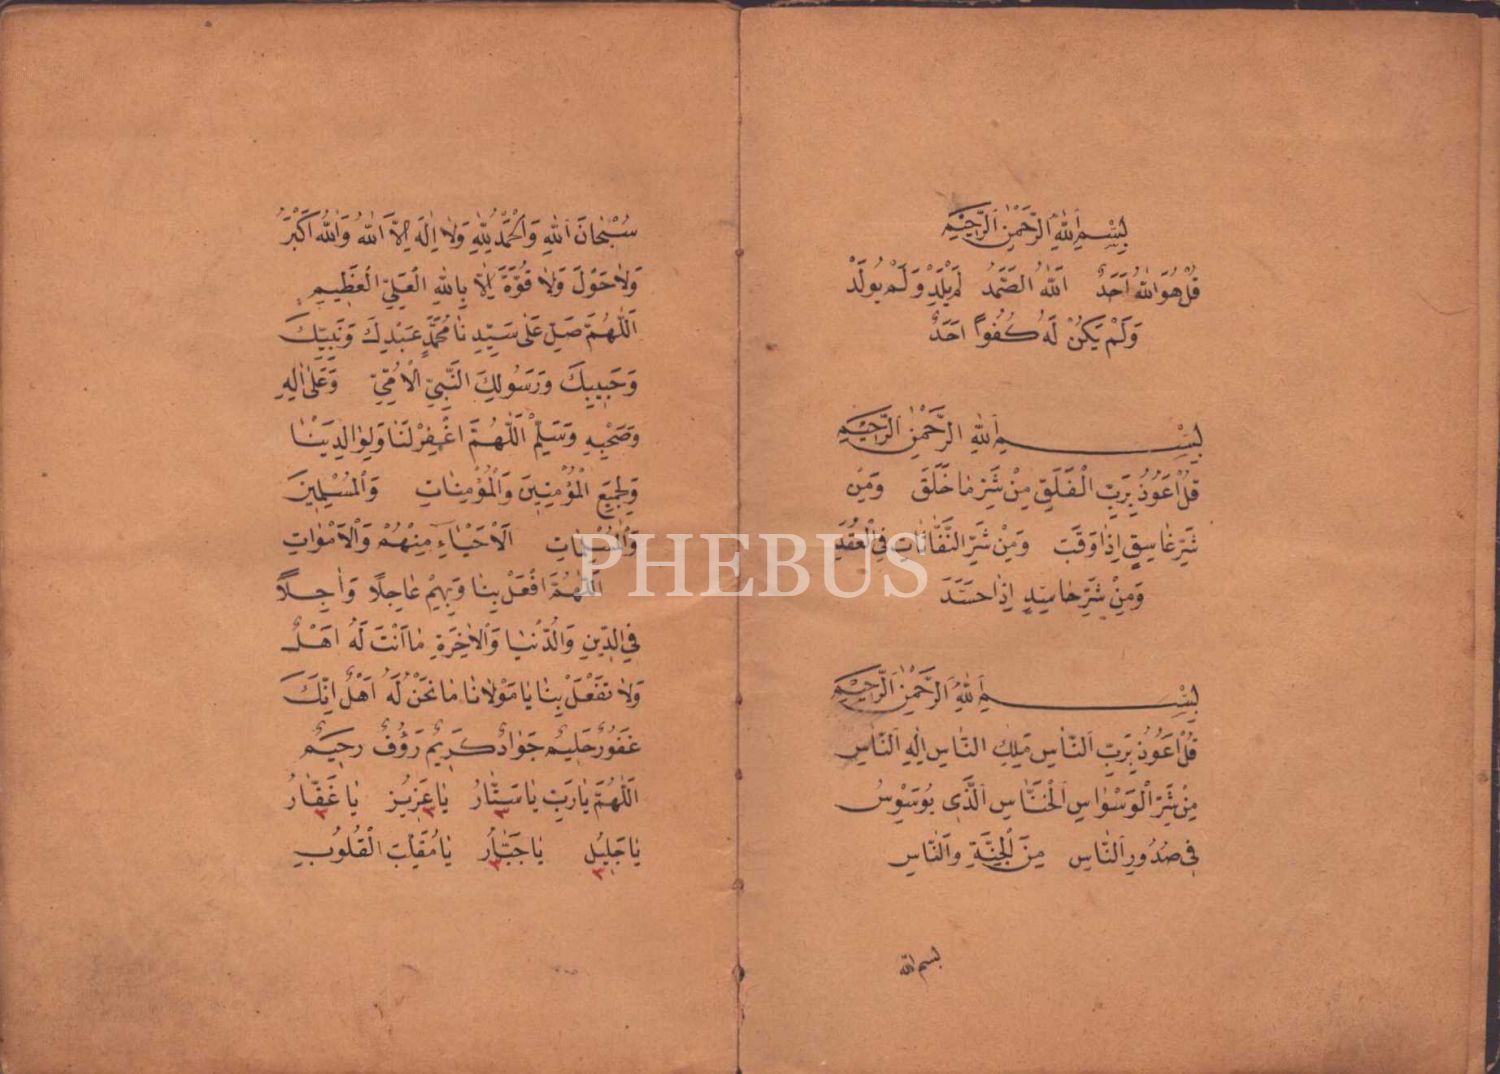 بِسْمِ اللهِ الرَّحْمٰنِ الرَّحِيْمِ
قُلْ هُوَ اللهُ اَحَدٌ اَللهُ الصَّمَدُ لَمْ يَلِدْ وَلَمْ يُولَدْ
وَلَمْ يَكُنْ لَهُ كُفُواً اَحَدٌ
بِسْمِ اللهِ الرَّحْمٰنِ الرَّحِيْمِ
قُلْ اَعُوذُ بِرَبِّ الْفَلَقِ مِنْ شَرِّ مَا خَلَقَ وَمِنْ
شَرِّ غَاسِقٍ اِذَا وَقَبَ وَمِنْ شَرِّ النَّفَّاثَاتِ فِي الْعُقَدِ
وَمِنْ شَرِّ حَاسِدٍ اِذَا حَسَدَ
بِسْمِ اللهِ الرَّحْمٰنِ الرَّحِيْمِ
قُلْ اَعُوذُ بِرَبِّ النَّاسِ مَلِكِ النَّاسِ اِلٰهِ النَّاسِ
مِنْ شَرِّ الْوَسْوَاسِ الْخَنَّاسِ الَّذِي يُوَسْوِسُ
فِي صُدُورِ النَّاسِ مِنَ الْجِنَّةِ وَالنَّاسِ
بسم الله
سُبْحَانَ اللهِ وَالْحَمْدُ لِلّٰهِ وَلَا اِلٰهَ اِلَّا اللهُ وَاللهُ اَكْبَرُ
وَلَا حَوْلَ وَلَا قُوَّةَ اِلَّا بِاللهِ الْعَلِيِّ الْعَظِيمِ
اَللّٰهُمَّ صَلِّ عَلَى سَيِّدِنَا مُحَمَّدٍ عَبْدِكَ وَنَبِيِّكَ
وَحَبِيبِكَ وَرَسُولِكَ النَّبِيِّ الْاُمِّيِّ وَعَلَى اٰلِهِ
وَصَحْبِهِ وَسَلِّمْ اَللّٰهُمَّ اغْفِرْ لَنَا وَلِوَالِدَيْنَا
وَلِجَمِيعِ الْمُؤْمِنِينَ وَالْمُؤْمِنَاتِ وَالْمُسْلِمِينَ
وَالْمُسْلِمَاتِ اَلْاَحْيَاءِ مِنْهُمْ وَالْاَمْوَاتِ
اَللّٰهُمَّ افْعَلْ بِنَا وَبِهِمْ عَاجِلًا وَاٰجِلًا
فِي الدِّينِ وَالدُّنْيَا وَالْاٰخِرَةِ مَا اَنْتَ لَهُ اَهْلٌ
وَلَا تَفْعَلْ بِنَا يَا مَوْلَانَا مَا نَحْنُ لَهُ اَهْلٌ اِنَّكَ
غَفُورٌ حَلِيمٌ جَوَادٌ كَرِيمٌ رَؤُفٌ رَحِيمٌ
اَللّٰهُمَّ يَا رَبِّ يَا سَتَّارُ ٣ يَا عَزِيزُ ٣ يَا غَفَّارُ ٣
يَا جَلِيلُ ٣ يَا جَبَّارُ ٣ يَا مُقَلِّبَ الْقُلُوبِ
PHEBUS